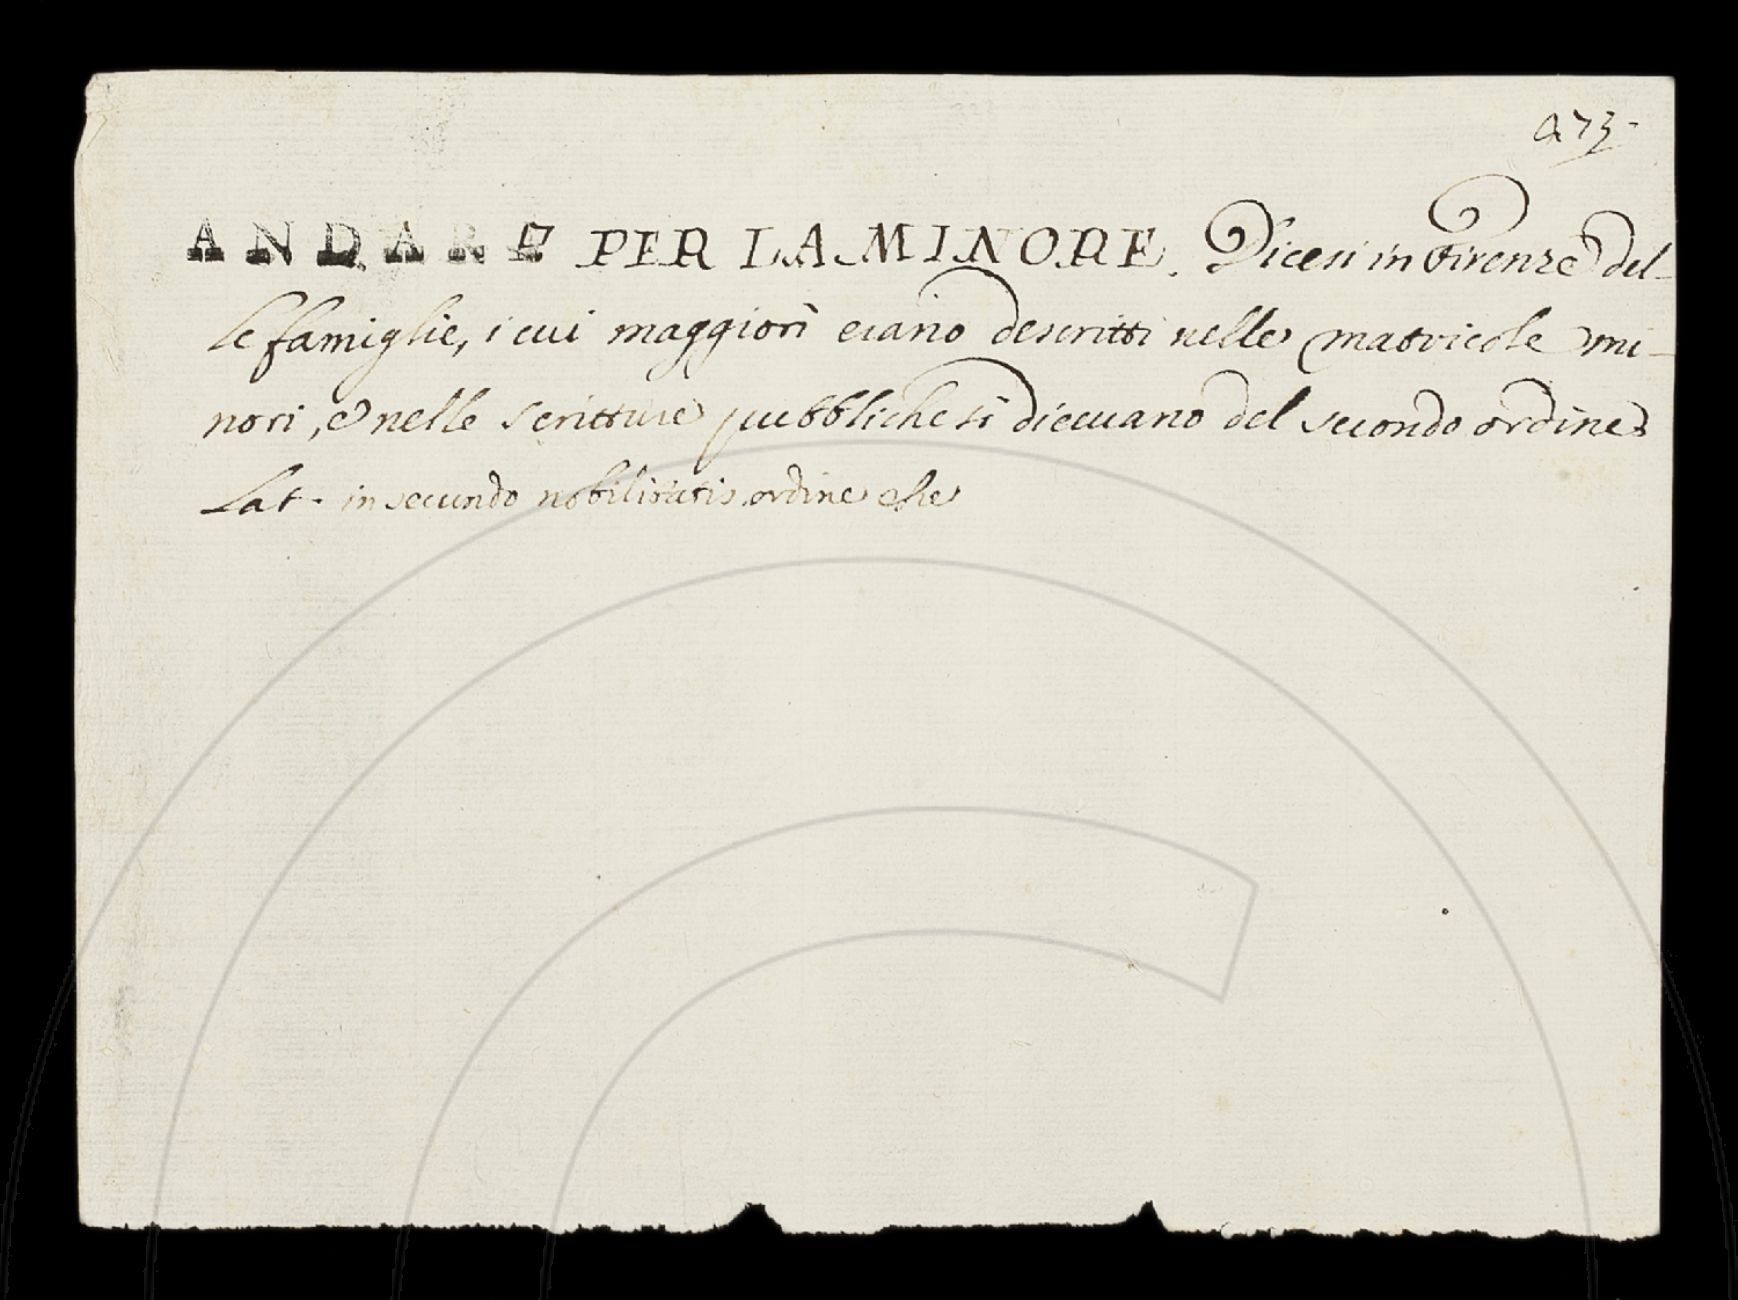 a 73.
ANDARE PER LA MINORE. Dicesi in Firenze del-
le famiglie, i cui maggiori erano descritti nelle matricole mi-
nori, e nelle scritture pubbliche si dicevano del secondo ordine
Lat. in secundo nobilitatis ordine che